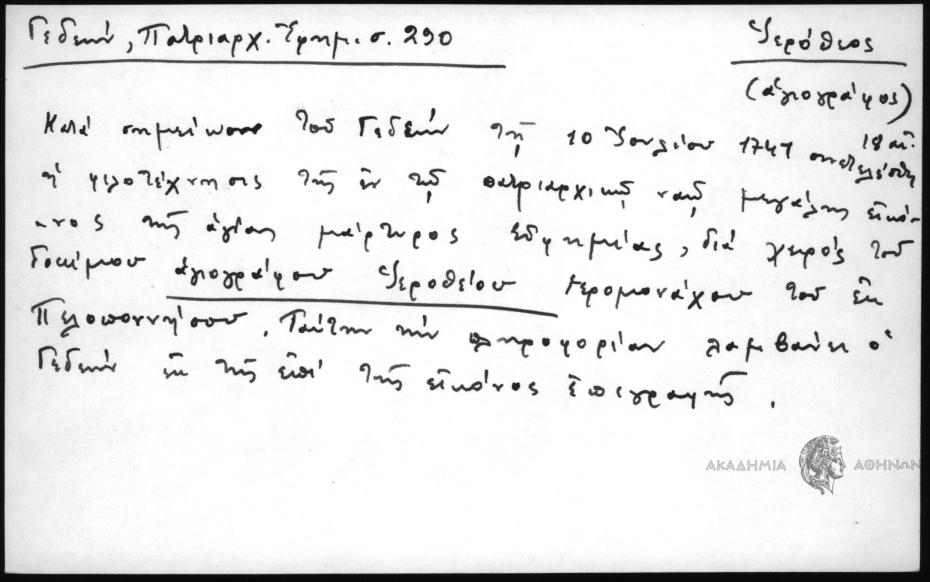 Γεδεών, Πατριαρχ. Ἐφημ. σ. 290
Ἱερόθεος
(ἁγιογράφος)
18 αἰ.
Κατά σημείωσιν τοῦ Γεδεών τῇ 10 Ἰουλίου 1741 συνετελέσθη
ἡ φιλοτέχνησις τῆς ἐν τῷ πατριαρχικῷ ναῷ μεγάλης εἰκό-
νος τῆς ἁγίας μάρτυρος Εὐφημίας, διά χειρός τοῦ
δοκίμου ἁγιογράφου Ἱεροθείου ἱερομονάχου τοῦ ἐκ
Πελοποννήσου. Ταύτην τήν πληροφορίαν λαμβάνει ὁ
Γεδεών ἐκ τῆς ἐπί τῆς εἰκόνος ἐπιγραφῆς.
ΑΚΑΔΗΜΙΑ ΑΘΗΝΩΝ